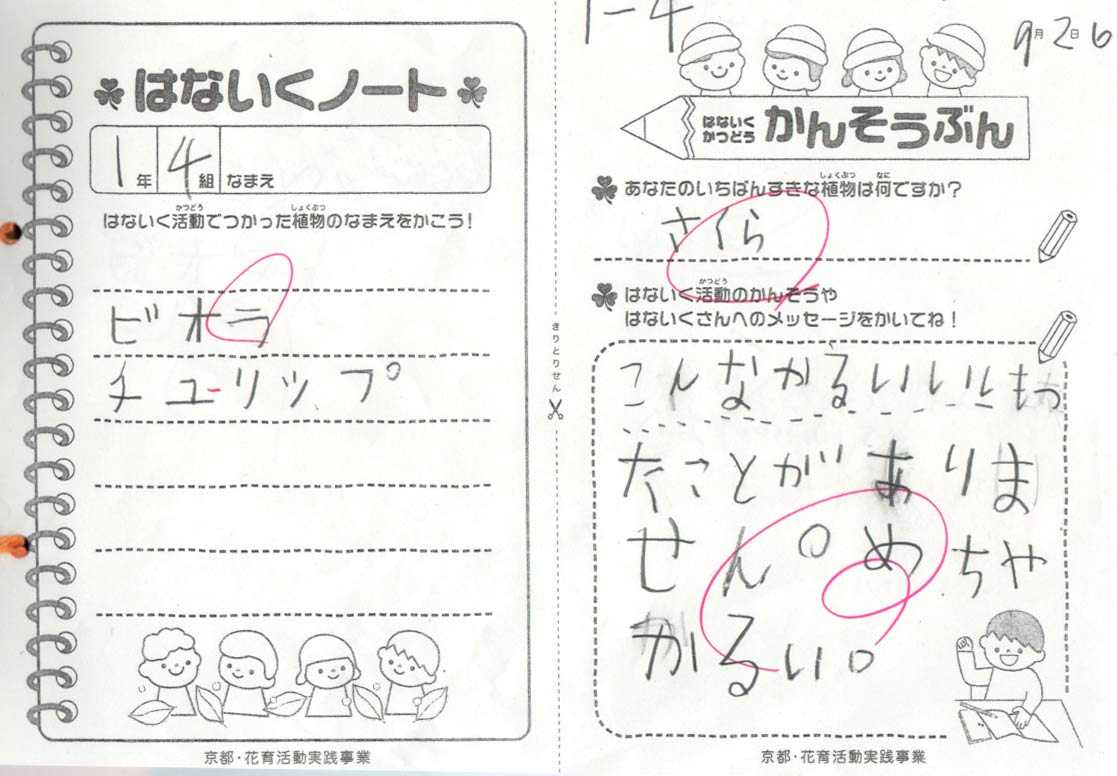 はないくノート
1年 4組 なまえ
はないく活動でつかった植物のなまえをかこう!
かつどう
しょくぶつ
ビオラ
チューリップ
京都・花育活動実践事業
きりとりせん
1-4
9月26日
はないく
かつどう
かんそうぶん
あなたのいちばんすきな植物は何ですか?
しょくぶつ
なに
さくら
はないく活動のかんそうや
かつどう
はないくさんへのメッセージをかいてね!
こんなかるいいしもっ
たことがありま
せん。めちゃ
かるい。
京都・花育活動実践事業